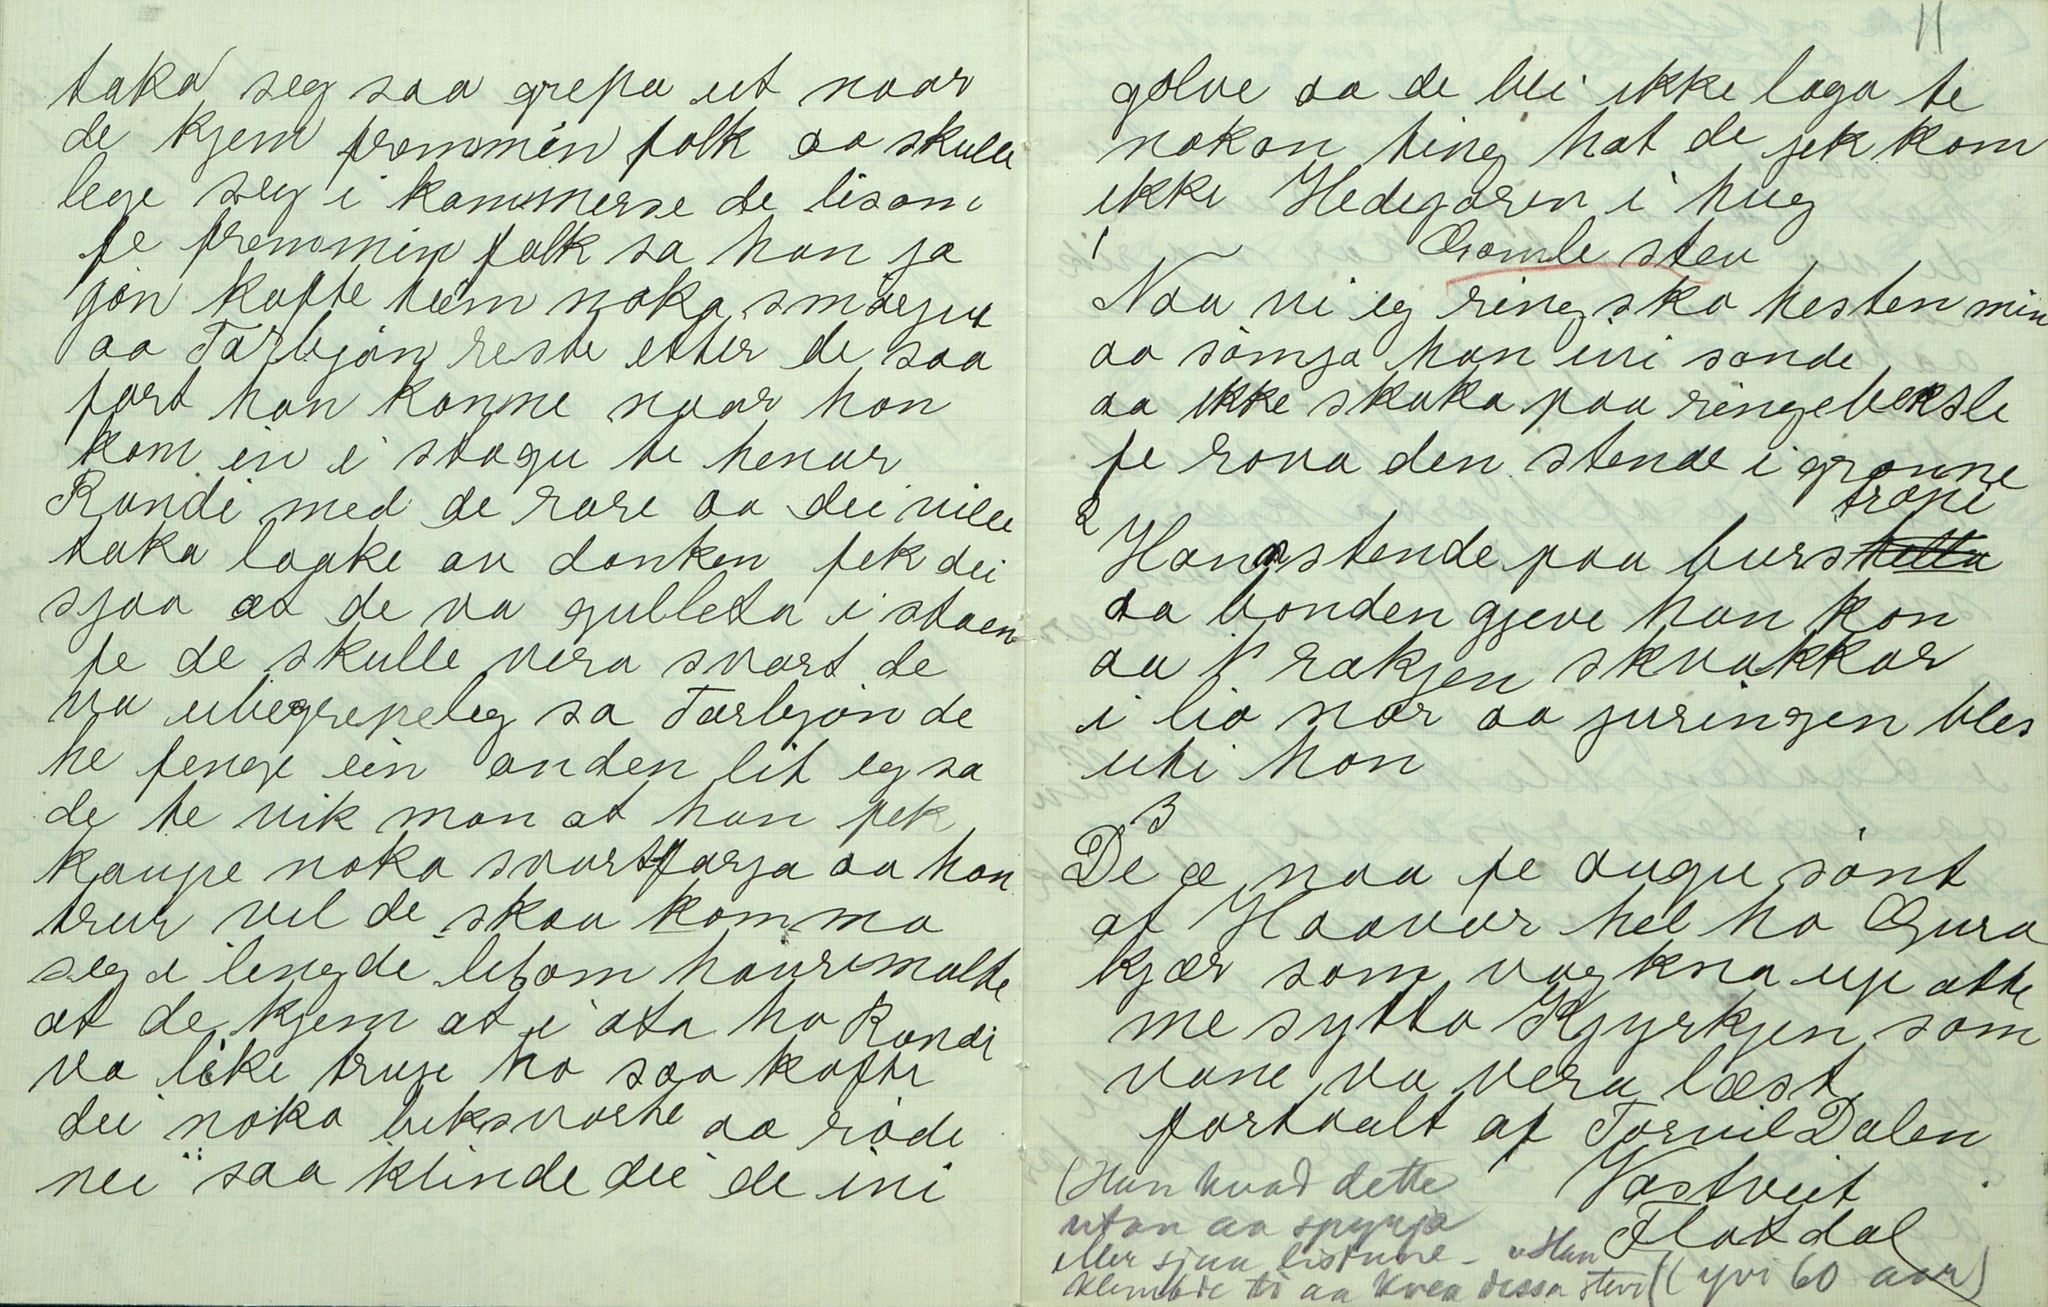 taka seg saa grepa ut naar
de kjem fremmin folk aa skulle
lege seg i kammerse de lisom
fe fremmin folk sa han ja
jøn kafte heim noka smørgut
aa Tarbjøn reste etter de saa
fort han konne naar han
kom in i stogu te henar
Randi med de rare aa dei ville
taka laake av danken fek dei
sjaa at de va gulleta i staen
fe de skulle vera svart de
va ubegrepeleg sa Tarbjøn de
he fenge ein anden lit eg sa
de te vik man at han fek
kaupe noka svartfarga aa han
trur vel de skaa komma
seg i lengde lisom hauremalte
at de kjem at i ata ho Randi
va like trug ho saa kafte
dei noka beksvarte aa røde
nei saa klinde dei de ini
11
golve aa de blei ikke laga te
nokan ting hat de jek kom
ikke Hedegaren i hug
Gamle stev
1
Naa vi eg ringsko hesten min
aa sømja han uvi sande
aa ikke skaka paa ringebeksle
fe rova den stende i grønne
2
trøni
Hana stende paa burs
aa bonden gjeve han kon
aa rakjen skvakkar
i lio nor aa juringen bles
uti hon
3
De æ naa fe augu sønt
at Haavar hel ho Gura
kjær som vog kna up atte
me sytta Kjyrkjen som
vane va vera læst
fortaalt af Torvil Dalen
Vastveit
Flatdal
(yvi 60 aar)
(Han kvad dette
utan aa spyrja
eller sjaa listune - Han
klembde ti aa kvea dessa stevi